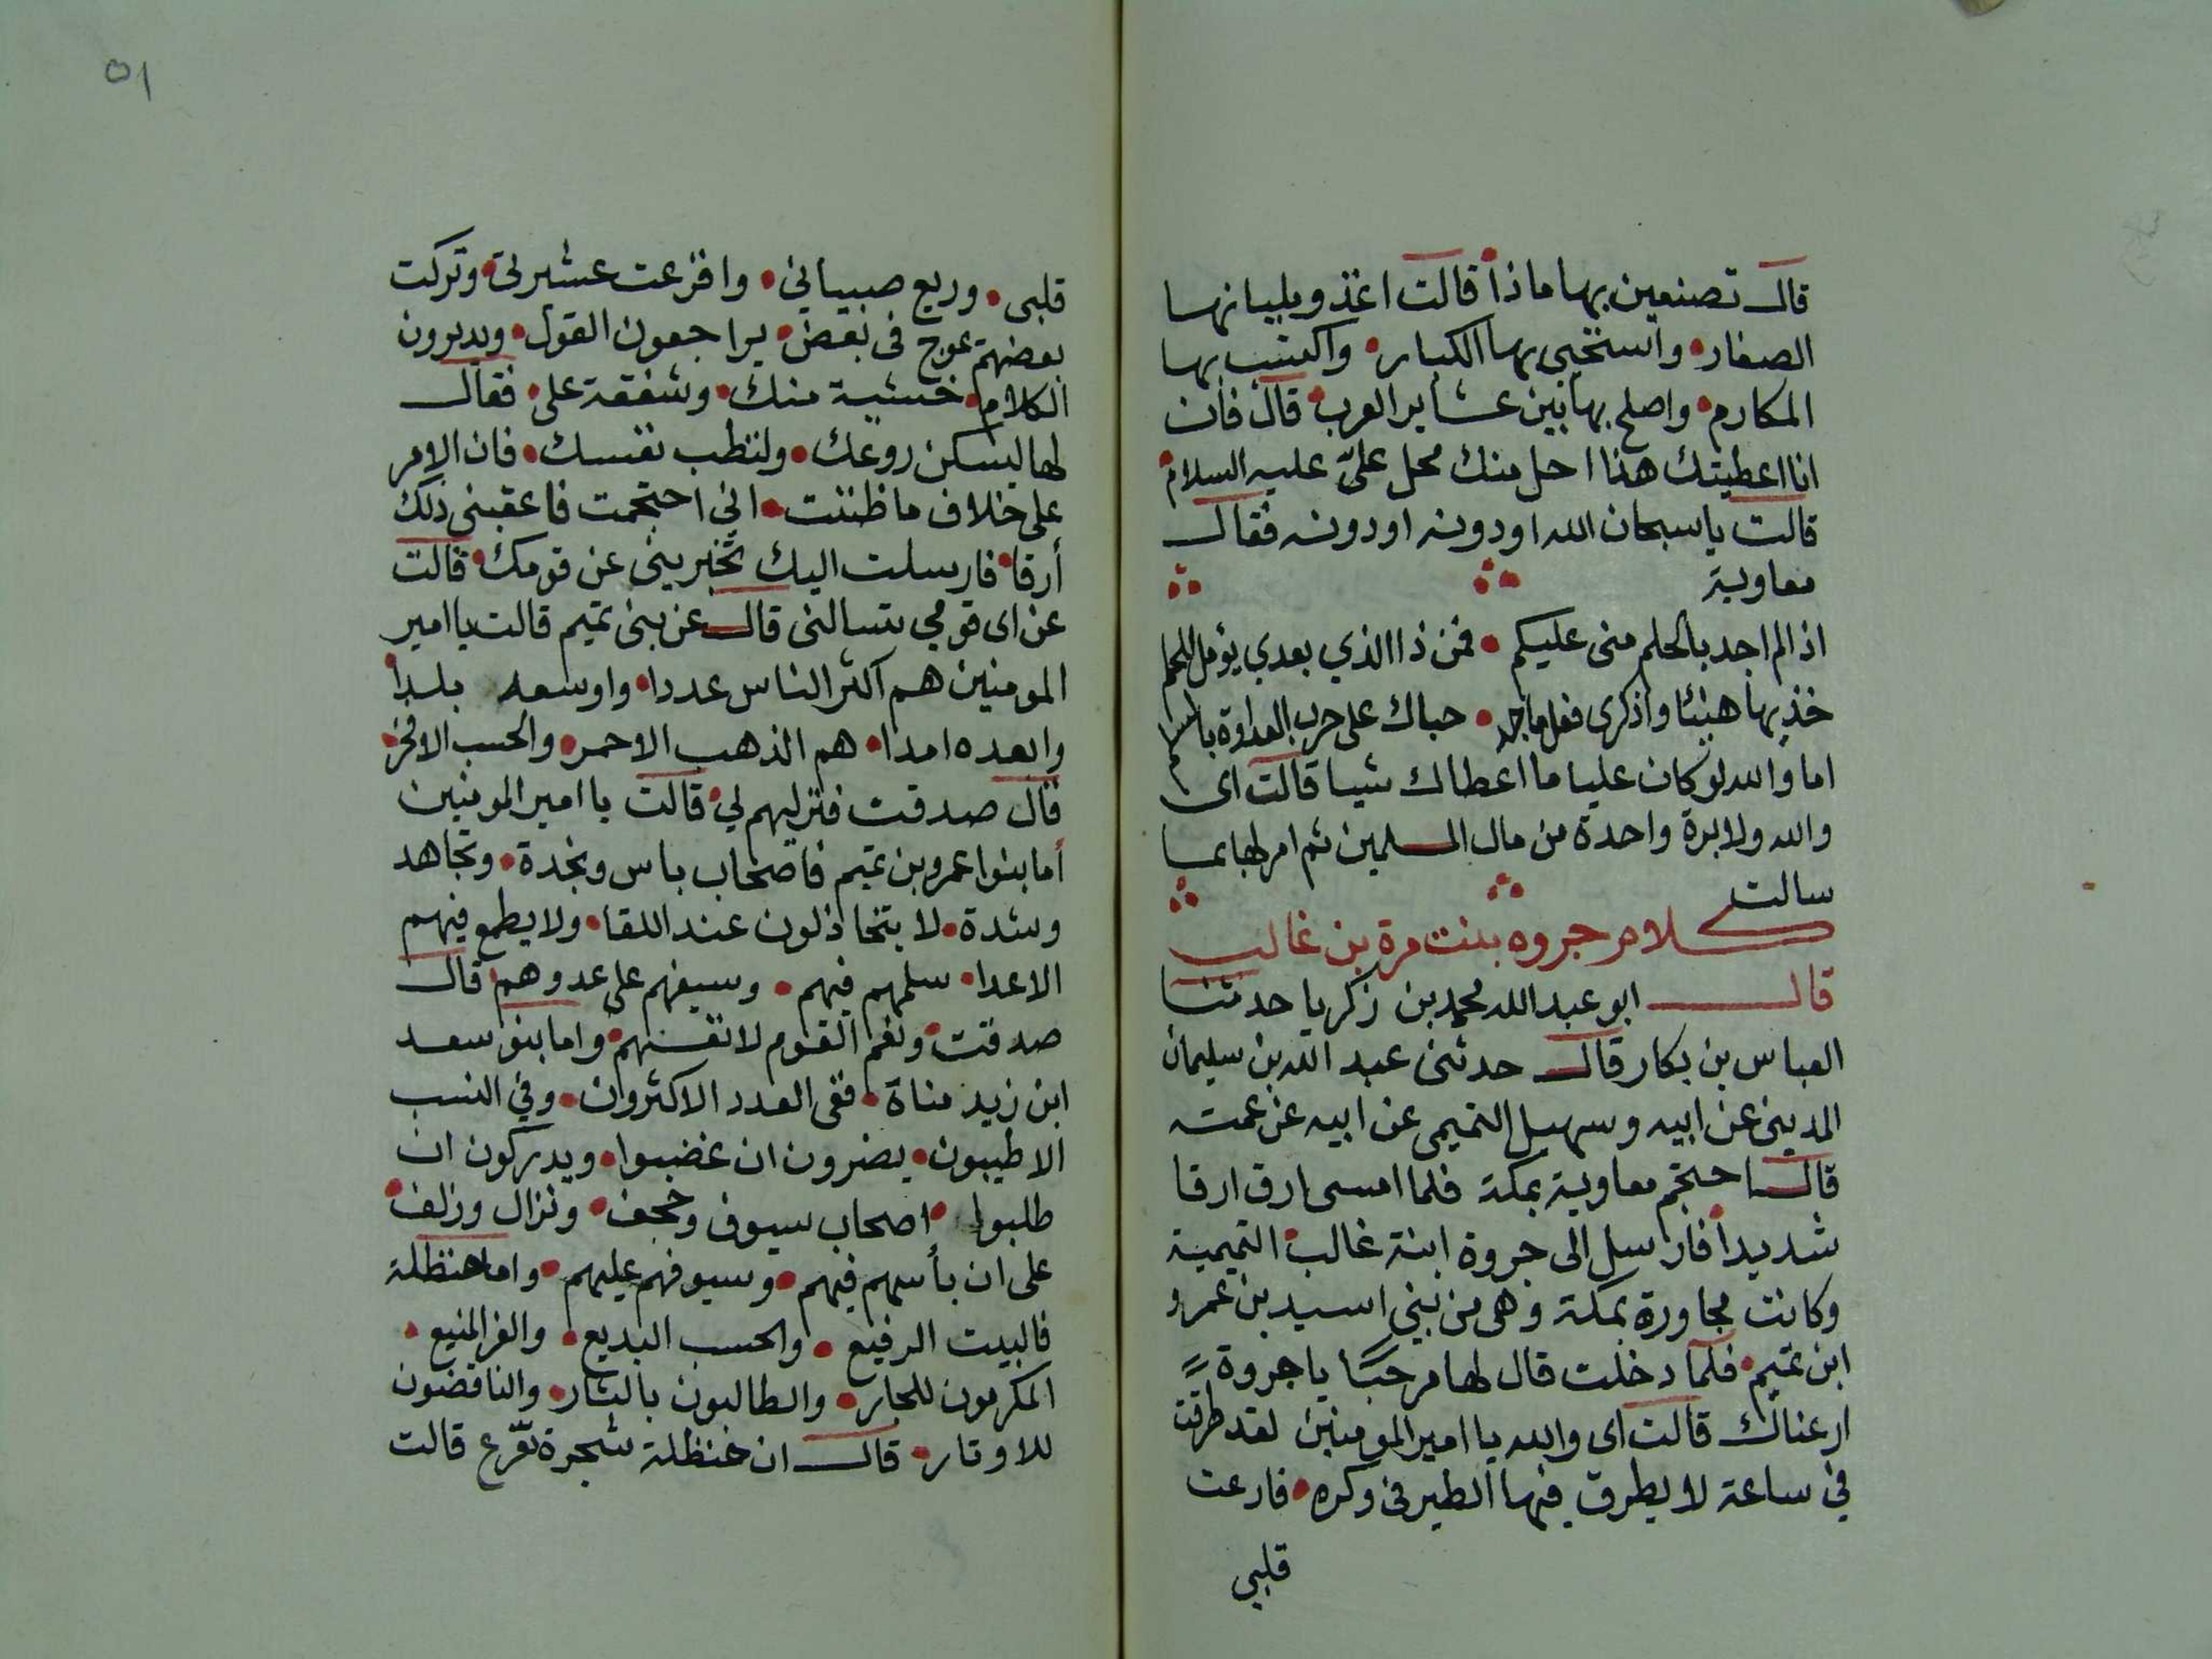 قال تصنعين بها ماذا قالت اغذو بلبانها
الصغار واستحيي بها الكبار واكتسب بها
المكارم واصلح بها بين عشاير العرب قال فان
انا اعطيتك هذا احل منك محل عليّ عليه السلام
قالت يا سبحان الله او دونه او دونه فقال
معاوية
اذا لم اجد بالحلم منى عليكم فمن ذا الذي بعدي يؤمل للحلم
خذيها هنيئا واذكرى فعل ماجد حباك على حرب العداوة بالسلم
اما والله لو كان عليا ما اعطاك شيا قالت اى
والله ولا برة واحدة من مال المسلمين ثم امر لها بما
سالت
كلام جروه بنت مرة بن غالب
قال ابو عبد الله محمد بن زكريا حدثنا
العباس بن بكار قال حدثنى عبد الله بن سليمان
المدينى عن ابيه وسهيل التميمى عن ابيه عن عمته
قالت احتجم معاوية بمكة فلما امسى ارق ارقا
شديدا فارسل الى جروة ابنة غالب التميمية
وكانت مجاورة بمكة وهى من بنى اسيد بن عمرو
ابن تميم فلما دخلت قال لها مرحبًا يا جروة
ارعناك قالت اى والله يا امير المومنين لقد طرقت
في ساعة لا يطرق فيها الطير فى وكره فارعت
قلبي
٥١
قلبى وريع صبيانى وافزعت عشيرتى وتركت
بعضهم يموج فى بعض يراجعون القول ويديرون
الكلام خشية منك وشفقة على فقال
لها ليسكن روعك ولتطب نفسك فان الامر
على خلاف ما ظننت انى احتجمت فاعقبنى ذلك
أرقا فارسلت اليك تخبرينى عن قومك قالت
عن اى قومي تسالنى قال عن بنى تميم قالت يا امير
المومنين هم اكثر الناس عددا واوسعه بلدا
وابعده امدا هم الذهب الاحمر والحسب الافخر
قال صدقت فنزليهم لي قالت يا امير المومنين
أما بنوا عمرو بن تميم فاصحاب باس ونجدة وتجاهد
وشدة لا يتخاذلون عند اللقا ولا يطمع فيهم
الاعدا سلمهم فيهم وسيفهم على عدوهم قال
صدقت ونعم القوم لانفسهم واما بنو سعد
ابن زيد مناة ففى العدد الاكثرون وفي النسب
الاطيبون يضرون ان غضبوا ويدركون ان
طلبوا اصحاب سيوف وحجف ونزال وزلف
على ان بأسهم فيهم وسيوفهم عليهم واما حنظلة
فالبيت الرفيع والحسب البديع والعز المنيع
المكرمون للجار والطالبون بالثار والناقضون
للاوتار قال ان حنظلة شجرة تفرع قالت